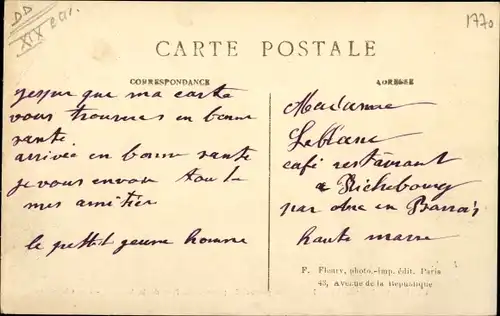 DD
XIX
1770
CARTE POSTALE
CORRESPONDANCE
ADRESSE
jespur que ma carte
vous trouvues en bonne
santé.
arrivée en bonne santé
je vous envoie toute
mes amitiér
le pettit jeune homme
Madame
Leblanc
café restaurant
a Richebourg
par arc en Barrois
haute marne
F. Fleury, photo.-imp. édit. Paris
43, Avenue de la République